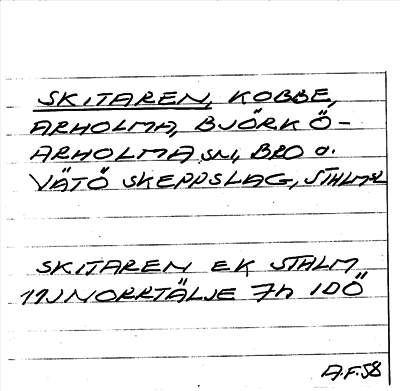 SKITAREN, KOBBE,
ARHOLMA, BJÖRKÖ-
ARHOLMA SN, BRO O.
VÄTÖ SKEPPSLAG, STHLMS L
SKITAREN EK STHLM
11J NORRTÄLJE 7h IDÖ
A.F.58